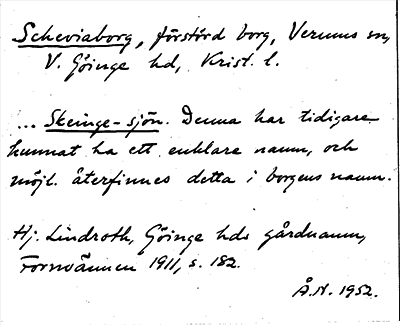 Scheviaborg, förstörd borg, Verums sn,
V. Göinge hd, Krist. l.
... Skeinge-sjön. Denna har tidigare
kunnat ha ett enklare namn, och
möjl. återfinnes detta i borgens namn.
Hj. Lindroth, Göinge hds gårdnamn,
Fornvännen 1911, s. 182.
Å.N. 1952.